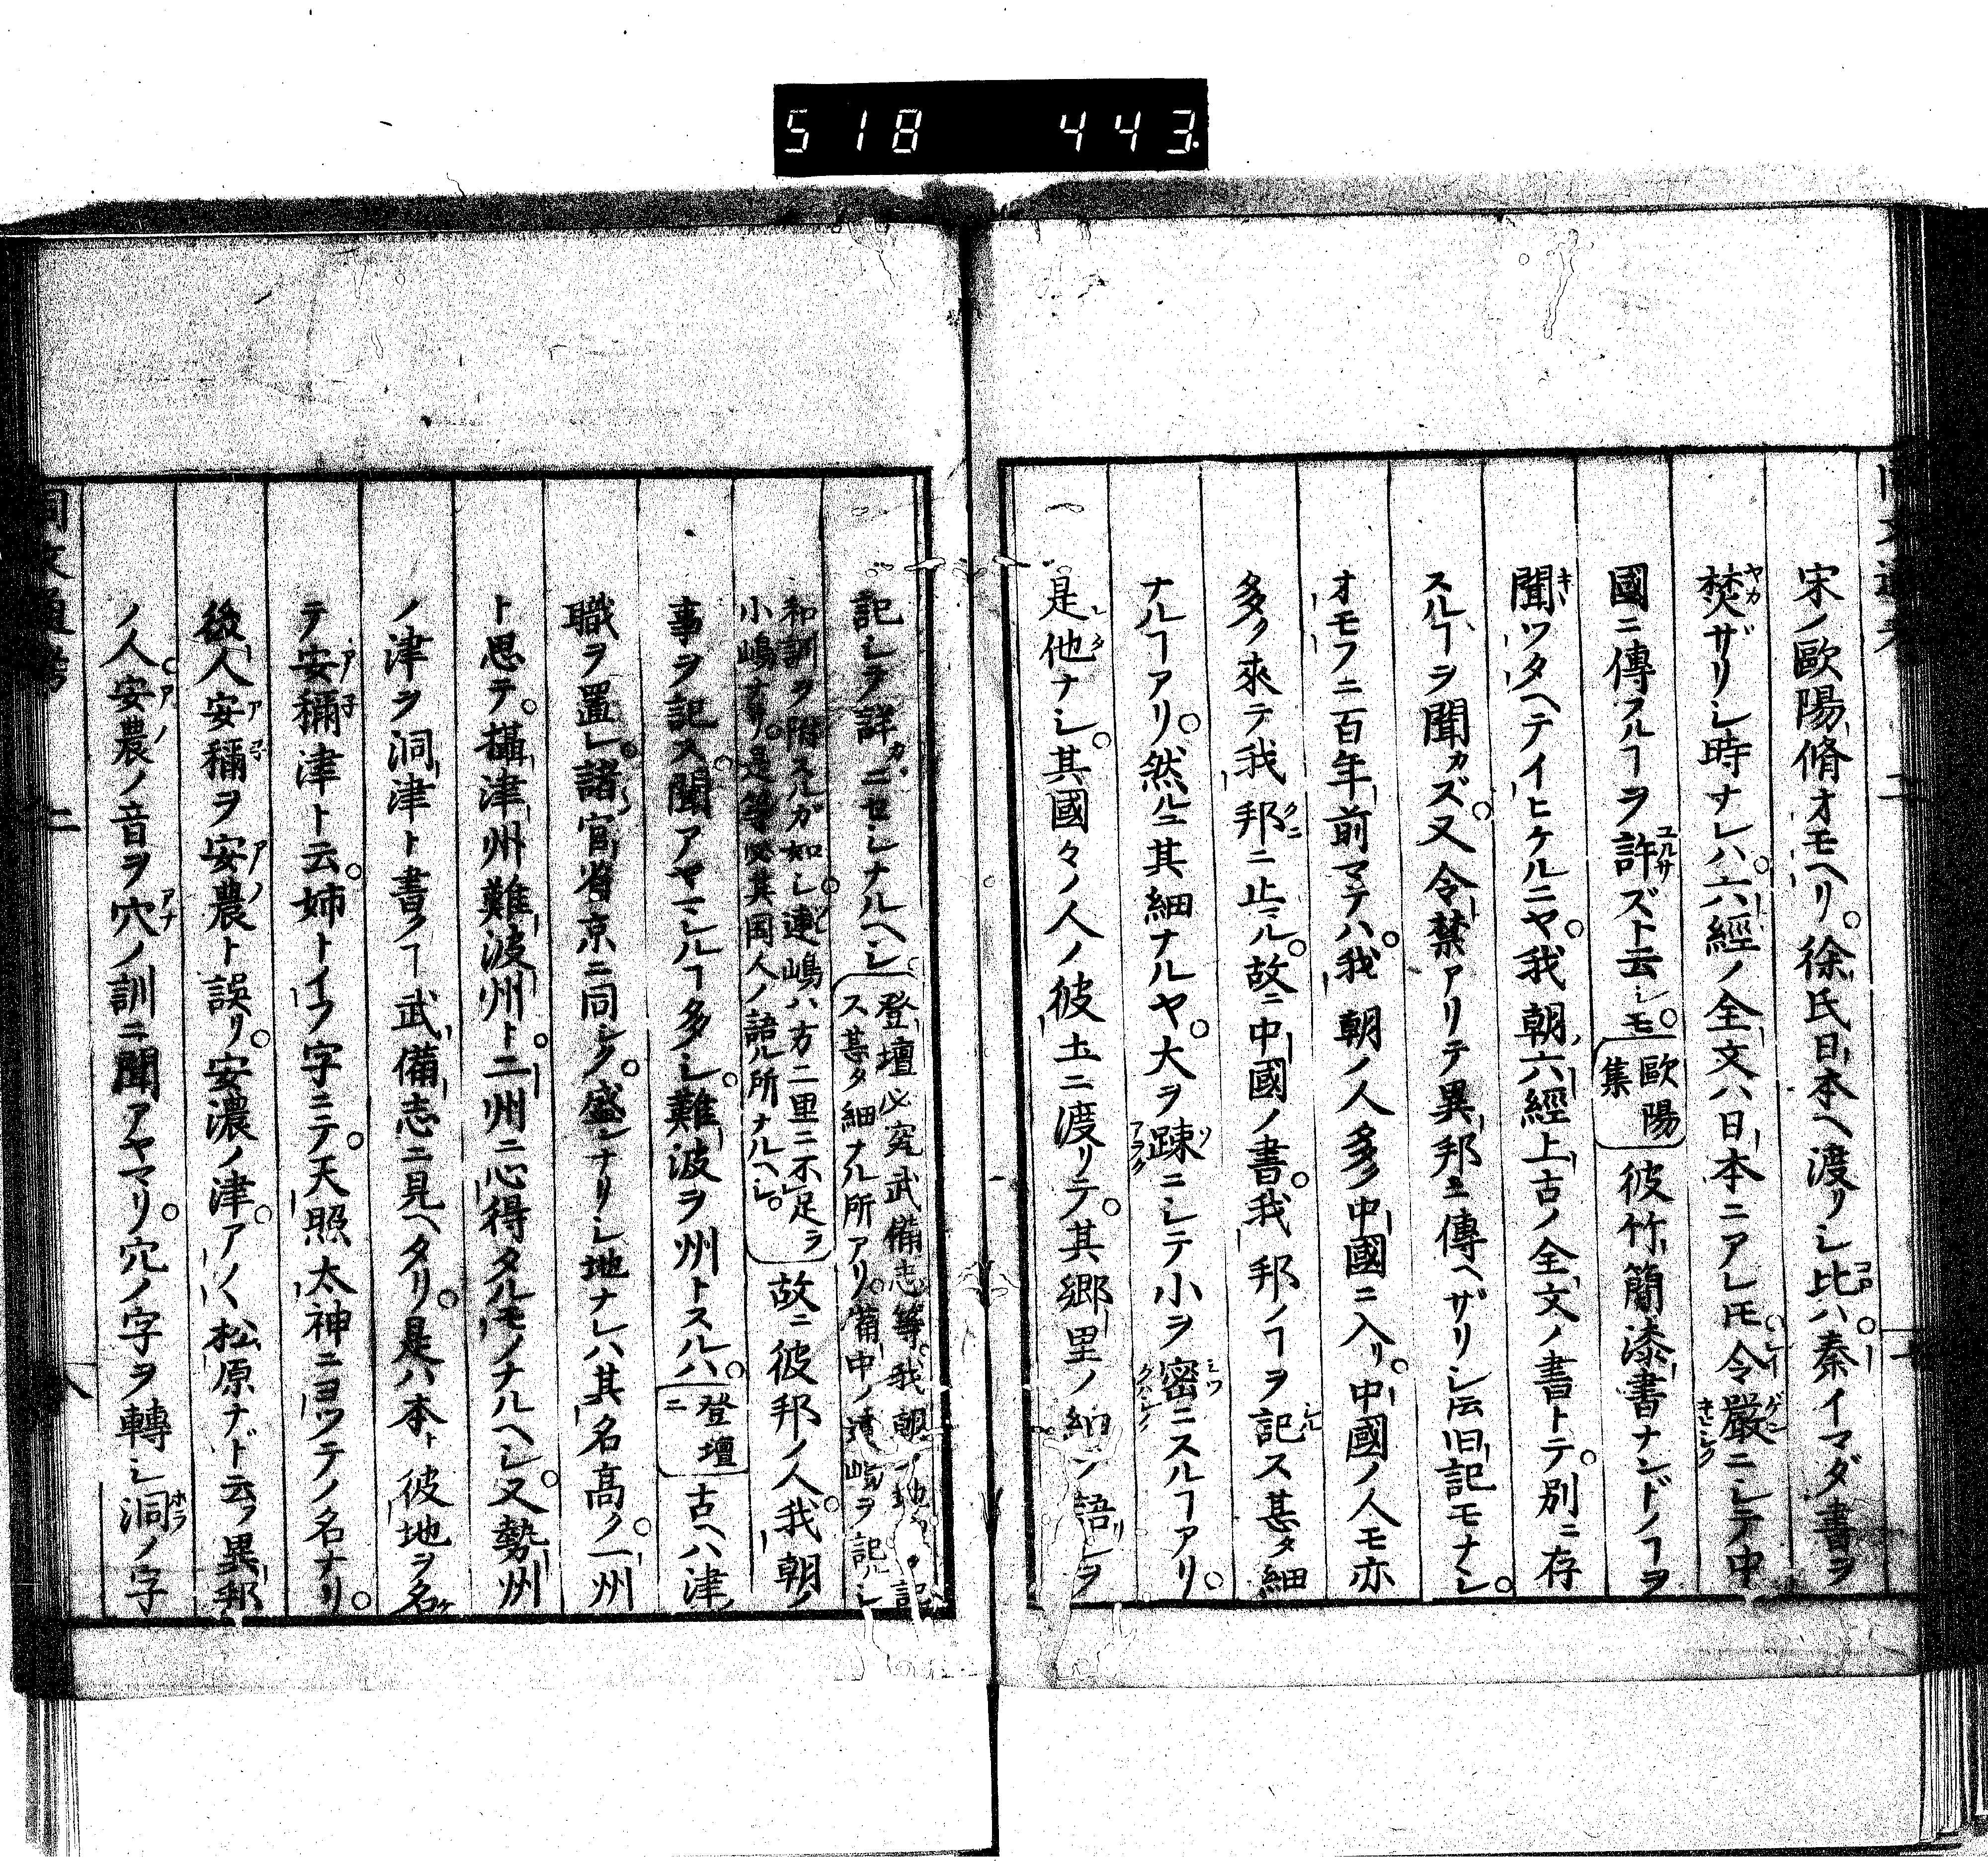 518 443
宋ノ歐陽脩オモヘリ。徐氏日本ヘ渡リシ比ハ。秦イマダ書ヲ
焚ザリシ時ナレハ。六經ノ全文ハ日本ニアレㇳモ。令嚴ニシテ中
國ニ傳フルヿヲ許ズト云ㇳモ。歐陽集 彼竹簡漆書ナンドノヿヲ
聞ツタヘテイヒケルニヤ。我朝六經上古ノ全文ノ書トテ。別ニ存
スルヿヲ聞カズ。又令禁アリテ異邦エ傳ヘザリシ伝旧記モナシ。
オモフニ二百年前マテハ。我朝ノ人多ク中國ニ入リ。中國ノ人モ亦
多ク來テ我邦ニ止ル。故ニ中國ノ書。我邦ノヿヲ記ス甚タ細
ナルヿアリ。然ルニ其細ナルヤ。大ヲ踈ニシテ小ヲ密ニスルヿアリ。
是他ナシ。其國々ノ人ノ彼土ニ渡リテ。其郷里ノ語ヲ
記シヲ詳ニセシナルヘシ 登壇必究武備志等。我朝ノ地
ス甚タ細ナル所アリ。備中ノ嶋ヲ記シ
和訓ヲ附スルガ如シ。連嶋ハ方二里ニ不足ラ
小嶋ナリ。是等必其国人ノ語ル所ナルヘシ。 故ニ彼邦ノ人。我朝ノ
事ヲ記ス。聞アヤマシルヿ多シ。難波ヲ州トスルハ。登壇ニ 古ヘハ津
職ヲ置レ。諸官省京ニ同シク。盛ナリシ地ナレハ其名高ク。一州
ト思テ。攝津州難波州ト。二州ニ心得タルモノナルヘシ。又勢州
ノ津ヲ洞津ト書クヿ武備志ニ見ヘタリ。是ハ本ト彼地ヲ名ケ
テ安穪津ト云。姉トイフ字ニテ。天照太神ニヨツテノ名ナリ。
後人安穪ヲ安農ト誤リ。安濃ノ津。アノヽ松原ナド云フ。異邦
ノ人。安農ノ音ヲ穴ノ訓ニ聞アヤマリ。穴ノ字ヲ轉シ洞ノ字
同文通考
八